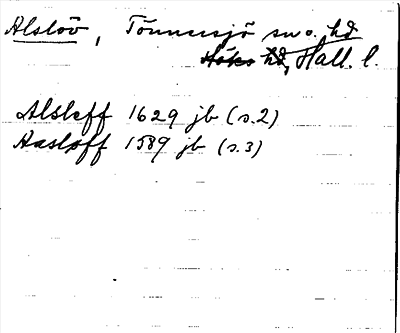 Alslöv, Tönnersjö sn o. hd
Höks hd, Hall. l.
Alsleff 1629 jb (s.2)
Aasløff 1589 jb (s.3)